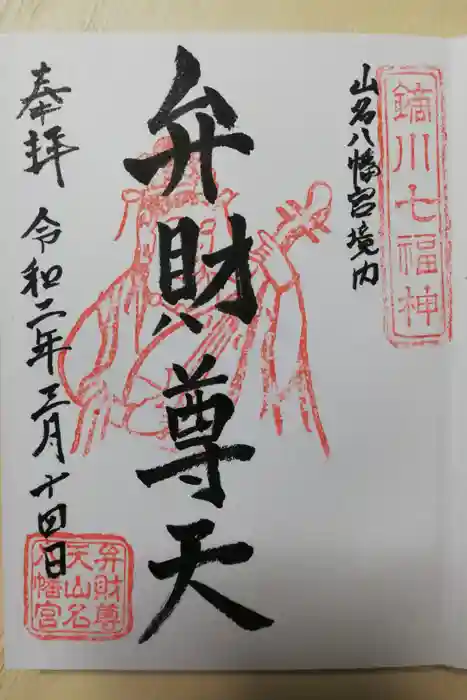 鏑川七福神
山名八幡宮境内
弁財尊天
奉拝 令和二年三月十四日
弁財尊
天山名
八幡宮